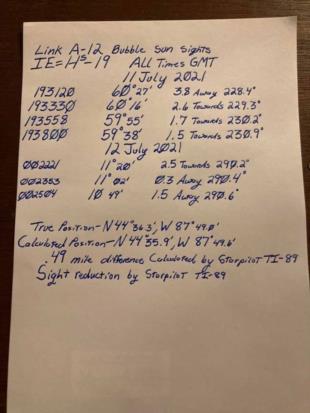 Link A-12 Bubble Sun Sights
IE = Hs - 19 All Times GMT
11 July 2021
193120 60° 27' 3.8 Away 228.4°
193330 60° 16' 2.6 Towards 229.3°
193558 59° 55' 1.7 Towards 230.2°
193800 59° 38' 1.5 Towards 230.9°
12 July 2021
002221 11° 20' 2.5 Towards 290.2°
002353 11° 02' 0.3 Away 290.4°
002504 10 49' 1.5 Away 290.6°
True Position - N 44° 36.3', W 87° 49.0'
Calculated Position - N 44° 35.9', W 87° 49.6'
.49 mile difference Calculated by Starpilot TI-89
Sight reduction by Starpilot TI-89